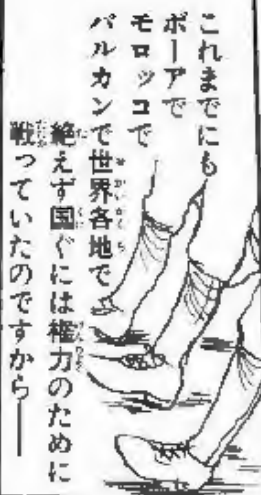 これまでにも
ボーアで
モロッコで
バルカンで世界各地で
絶えず国ぐには権力のために
戦っていたのですから──